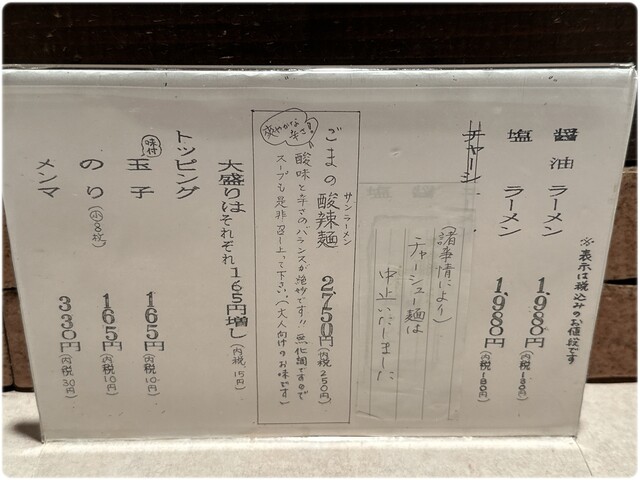 ※表示は税込みのお値段です
醤油ラーメン 1,980円(内税180円)
塩ラーメン 1,980円(内税180円)
チャーシ
(諸事情により)
チャーシュー麺は
中止いたしました
サンラーメン
ごまの酸辣麺 2750円(内税250円)
爽やかな辛さ!
酸味と辛さのバランスが絶妙です!!無化調ですので
スープも是非召し上って下さい。(大人向けのお味です)
大盛りはそれぞれ165円増し(内税15円)
トッピング
味付玉子 165円(内税10円)
のり(小8枚) 165円(内税10円)
メンマ 330円(内税30円)